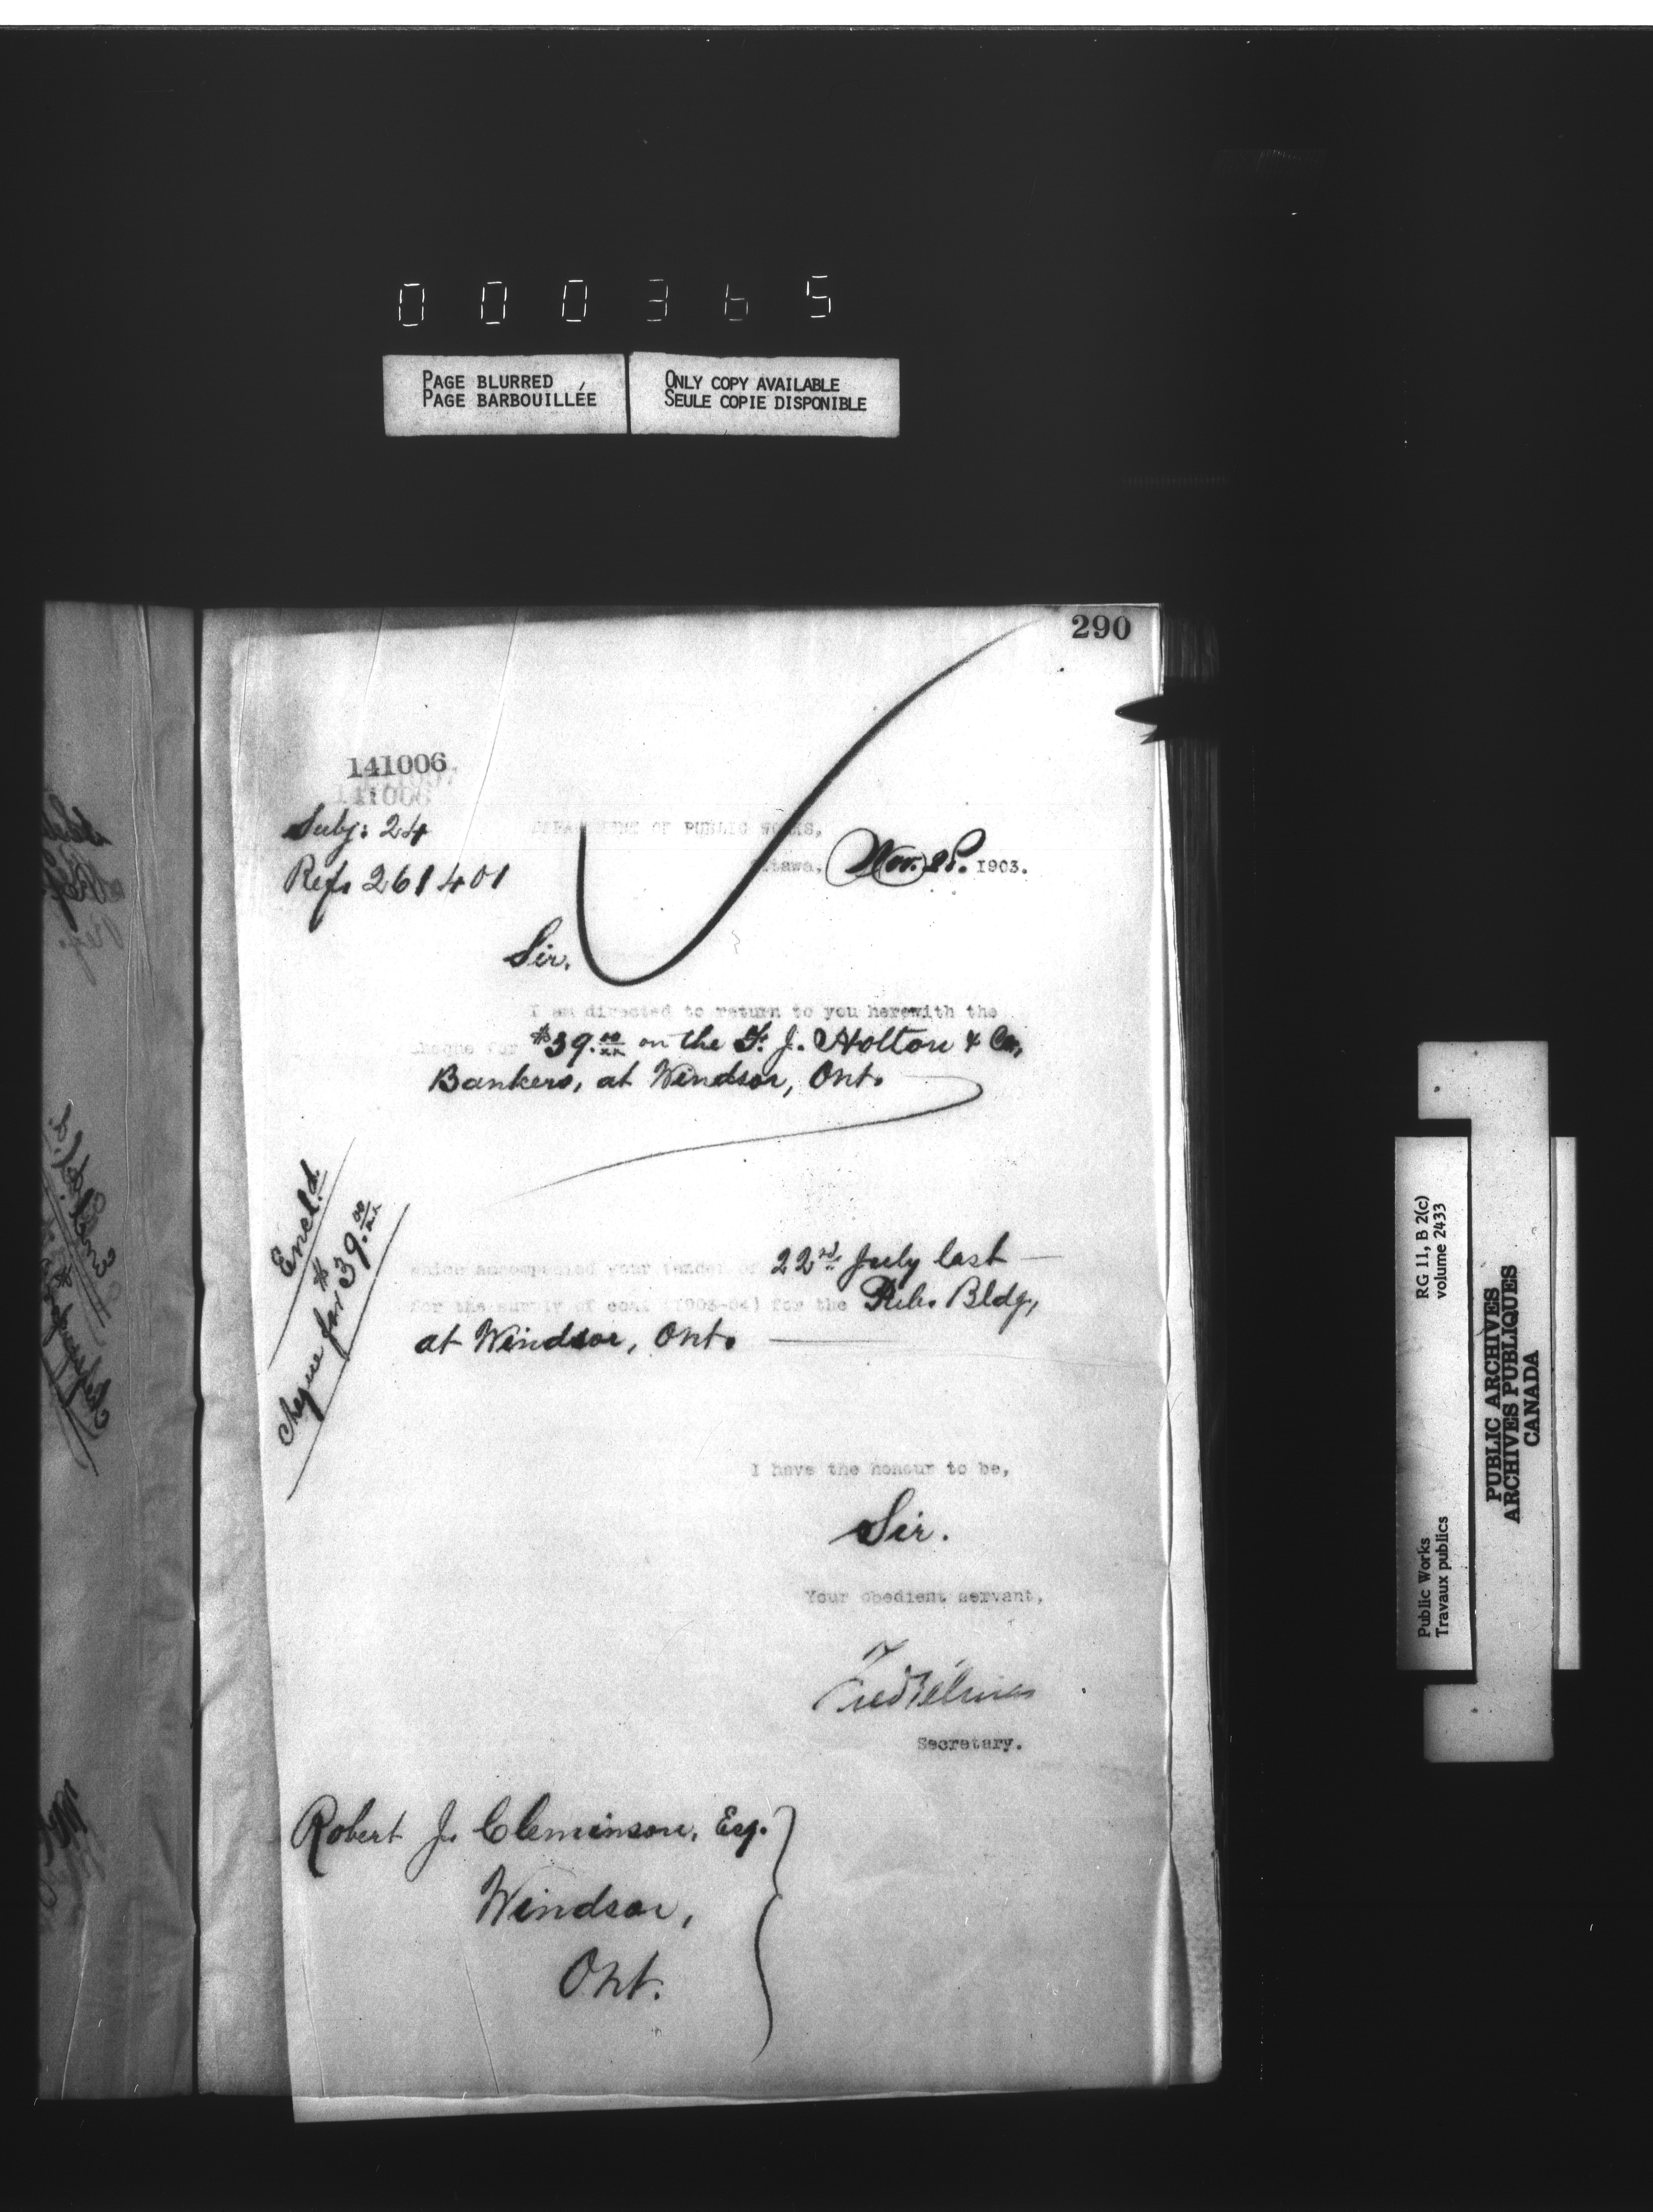 000365
PAGE BLURRED
PAGE BARBOUILLÉE
ONLY COPY AVAILABLE
SEULE COPIE DISPONIBLE
290
141006
141006
Subj: 24
Refs 261401
DEPARTMENT OF PUBLIC WORKS,
Ottawa, Nov. 28. 1903.
Sir,
I am directed to return to you herewith the
cheque for $39.00/xx on the F. J. Holton & Co,
Bankers, at Windsor, Ont.
Encld.
Cheque for $39.00/xx
which accompanied your tender of 22nd July last
for the supply of coal (1903-04) for the Pub. Bldg,
at Windsor, Ont.
I have the honour to be,
Sir.
Your obedient servant,
Fred Gélinas
Secretary.
Robert J. Cleminson, Esq.
Windsor,
Ont.
RG 11, B 2(c)
volume 2433
Public Works
Travaux publics
PUBLIC ARCHIVES
ARCHIVES PUBLIQUES
CANADA